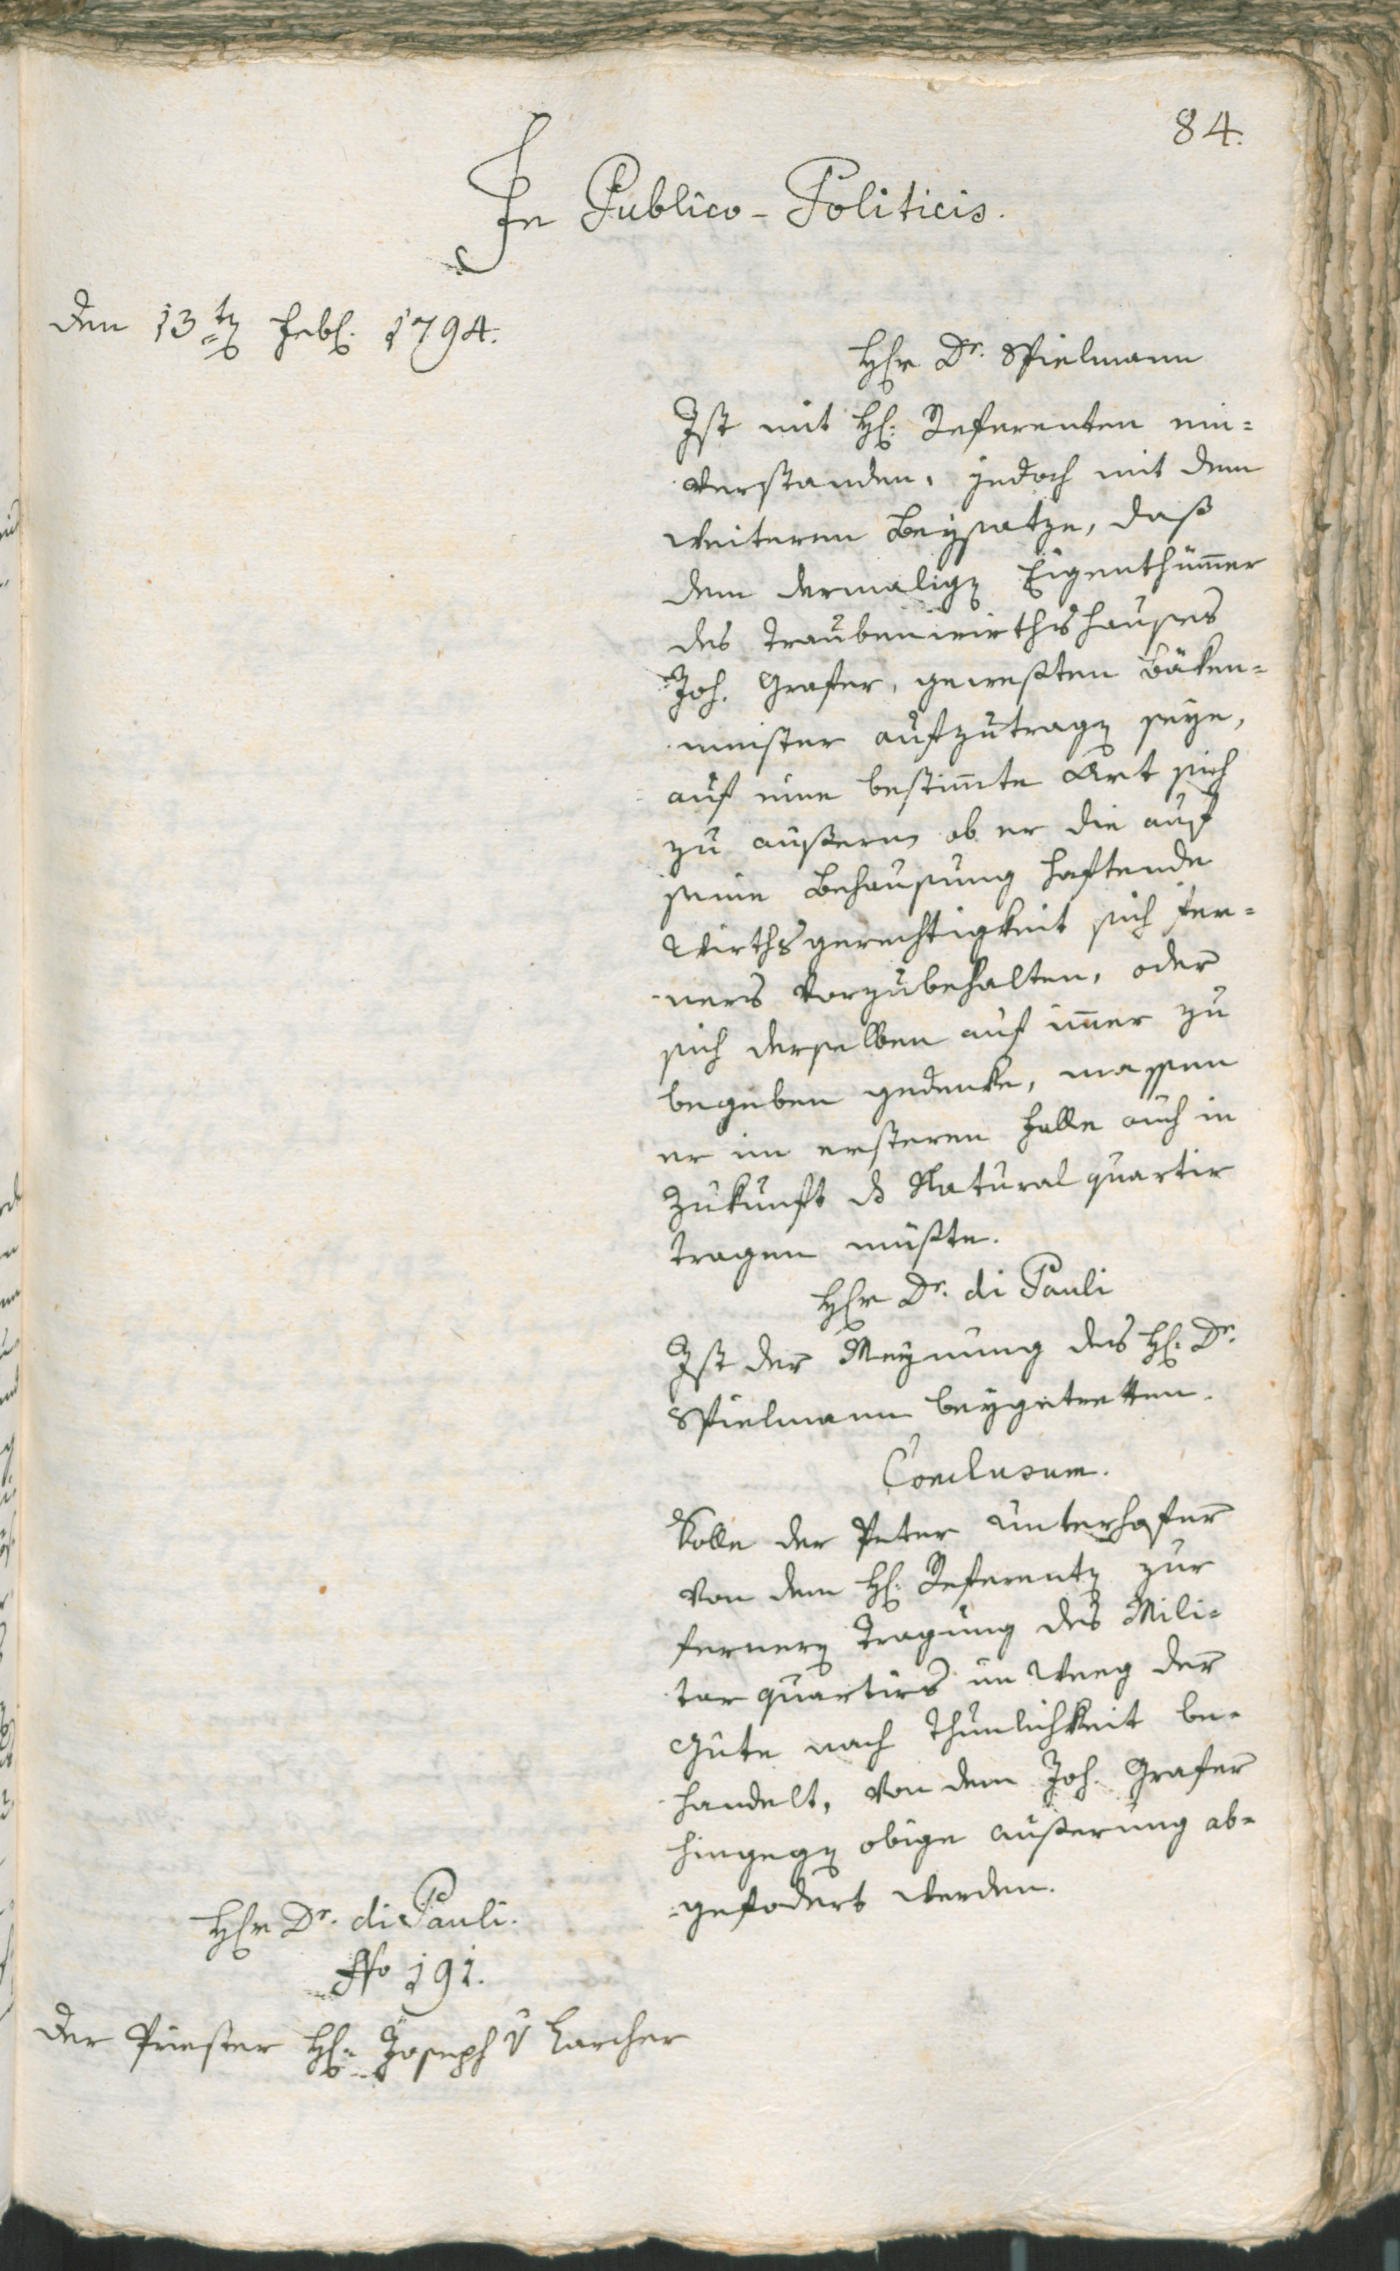 84.
In Publico-Politicis.
Den 13ten Febr. 1794.
Herr Dr. Spielmann
Ist mit H: Referenten ein-
verstanden, jedoch mit dem
weiteren Beysatze, daß
dem dermaligen Eigenthümmer
des Traubenwirthshauses
Joh. Grafer, gewesten Bäken-
meister aufzutragen seye,
auf eine bestimmte Art sich
zu äußern, ob er die auf
seine Behausung haftende
Wirthsgerechtigkeit sich fer-
ners vorzubehalten, oder
sich derselben auf immer zu
begeben gedenke, massen
er im ersteren Falle auch in
Zukunft das Naturalquartir
tragen müßte.
Herr Dr. di Pauli
Ist der Meynung des H: Dr.
Spielmann beygetretten.
Conclusum.
Solle der Peter Unterhofer
von dem H: Referenten zur
fernern Tragung des Mili-
tar quartirs im Weeg der
Güte nach Thunlichkeit be-
handelt, von dem Joh. Grafer
hingegen obige Außerung ab-
gefodert werden.
Herr Dr. di Pauli.
No 191.
Der Priester H: Joseph v Larcher